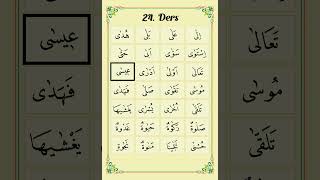 24. Ders
هُدٰى بَلٰى عَلٰى اِلٰى
حَتّٰى اَبٰى سَوّٰى اِسْتَوٰى
عِيسٰى عِيسٰى اَدْرٰى اَوْلٰى تَعَالٰى تَعَالٰى
فَهَدٰى فَهَدٰى صَلّٰى تَقْوٰى مُوسٰى مُوسٰى
يَغْشٰيهَا يَغْشٰيهَا يُسْرٰى اُخْرٰى تَلَقّٰى تَلَقّٰى
غَدٰوةٌ حَيٰوةٌ زَكٰوةٌ صَلٰوةٌ
نَجٰوةٌ مَنٰوةٌ حُسْنٰى